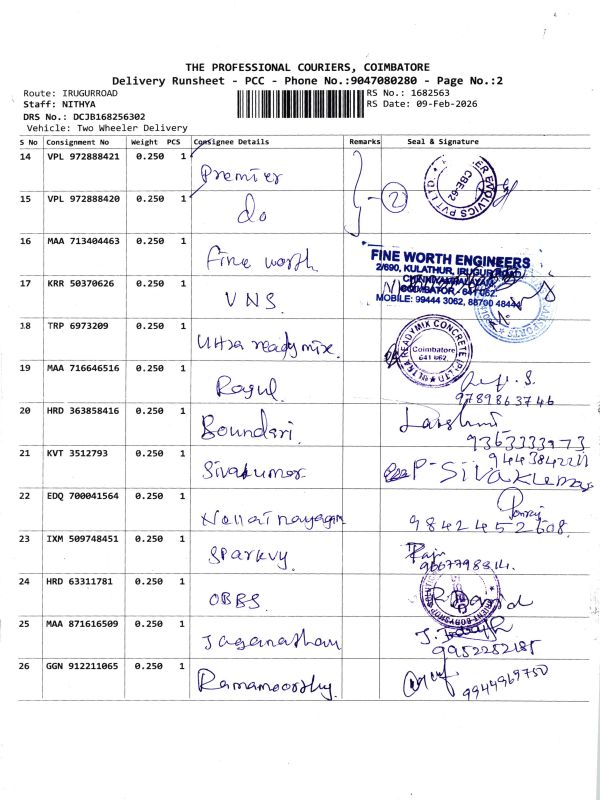 THE PROFESSIONAL COURIERS, COIMBATORE
Delivery Runsheet - PCC - Phone No.:9047080280 - Page No.:2
Route: IRUGURROAD
RS No.: 1682563
Staff: NITHYA
RS Date: 09-Feb-2026
DRS No.: DCJB168256302
Vehicle: Two Wheeler Delivery
S No Consignment No Weight PCS Consignee Details Remarks Seal & Signature
14 VPL 972888421 0.250 1 Premier
15 VPL 972888420 0.250 1 do 2 EVOLVICS PVT LTD CBE-62
16 MAA 713404463 0.250 1 Fine worth
FINE WORTH ENGINEERS
2/690, KULATHUR, IRUGUR ROAD
COIMBATOR - 641 062.
MOBILE: 99444 3062, 88700 48444
17 KRR 50370626 0.250 1 VNS
18 TRP 6973209 0.250 1 Ultra readymix. ULTRA READYMIX CONCRETE P LTD Coimbatore 641 062
19 MAA 716646516 0.250 1 Ragul 9789863746
20 HRD 363858416 0.250 1 Boundari Lakshmi 9363333973
21 KVT 3512793 0.250 1 Sivakumar P-Sivakumar
22 EDQ 700041564 0.250 1 Nallainayagam 9842452608
23 IXM 509748451 0.250 1 Sparkvy Raju
24 HRD 63311781 0.250 1 OBBS
25 MAA 871616509 0.250 1 Jaganathan 9952252185
26 GGN 912211065 0.250 1 Ramamoorthy 9944969750